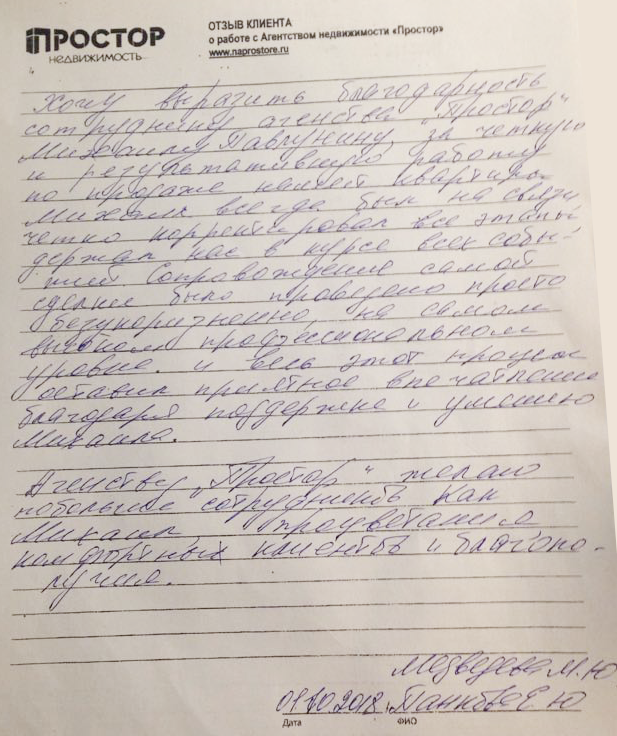 ПРОСТОР
НЕДВИЖИМОСТЬ
ОТЗЫВ КЛИЕНТА
о работе с Агентством недвижимости «Простор»
www.naprostore.ru
Хочу выразить благодарность
сотруднику агенства „Простор"
Михаилу Павлунину, за четкую
и результативную работу
по продаже нашей квартиры.
Михаил всегда был на связи,
четко корректировал все этапы,
держал нас в курсе всех собы-
тий. Сопровождение самой
сделки было проведено просто
безукоризненно, на самом
высоком профессиональном
уровне. и весь этот процесс
оставил приятное впечатление
благодаря поддержке и умению
Михаила.
Агенству „Простор" желаю
побольше сотрудников как
Михаил, процветания
комфортных клиентов и благопо-
лучия.
Медведева М.Ю
01.10.2018, Е Ю
Дата ФИО